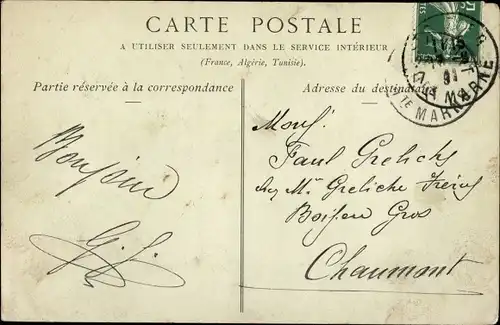 CARTE POSTALE
A UTILISER SEULEMENT DANS LE SERVICE INTÉRIEUR
(France, Algérie, Tunisie).
Partie réservée à la correspondance
Adresse du destinataire
Bonjour
Monsr.
Paul
Chez Mrs Greliche Frères
Gros
Chaumont
MARNE